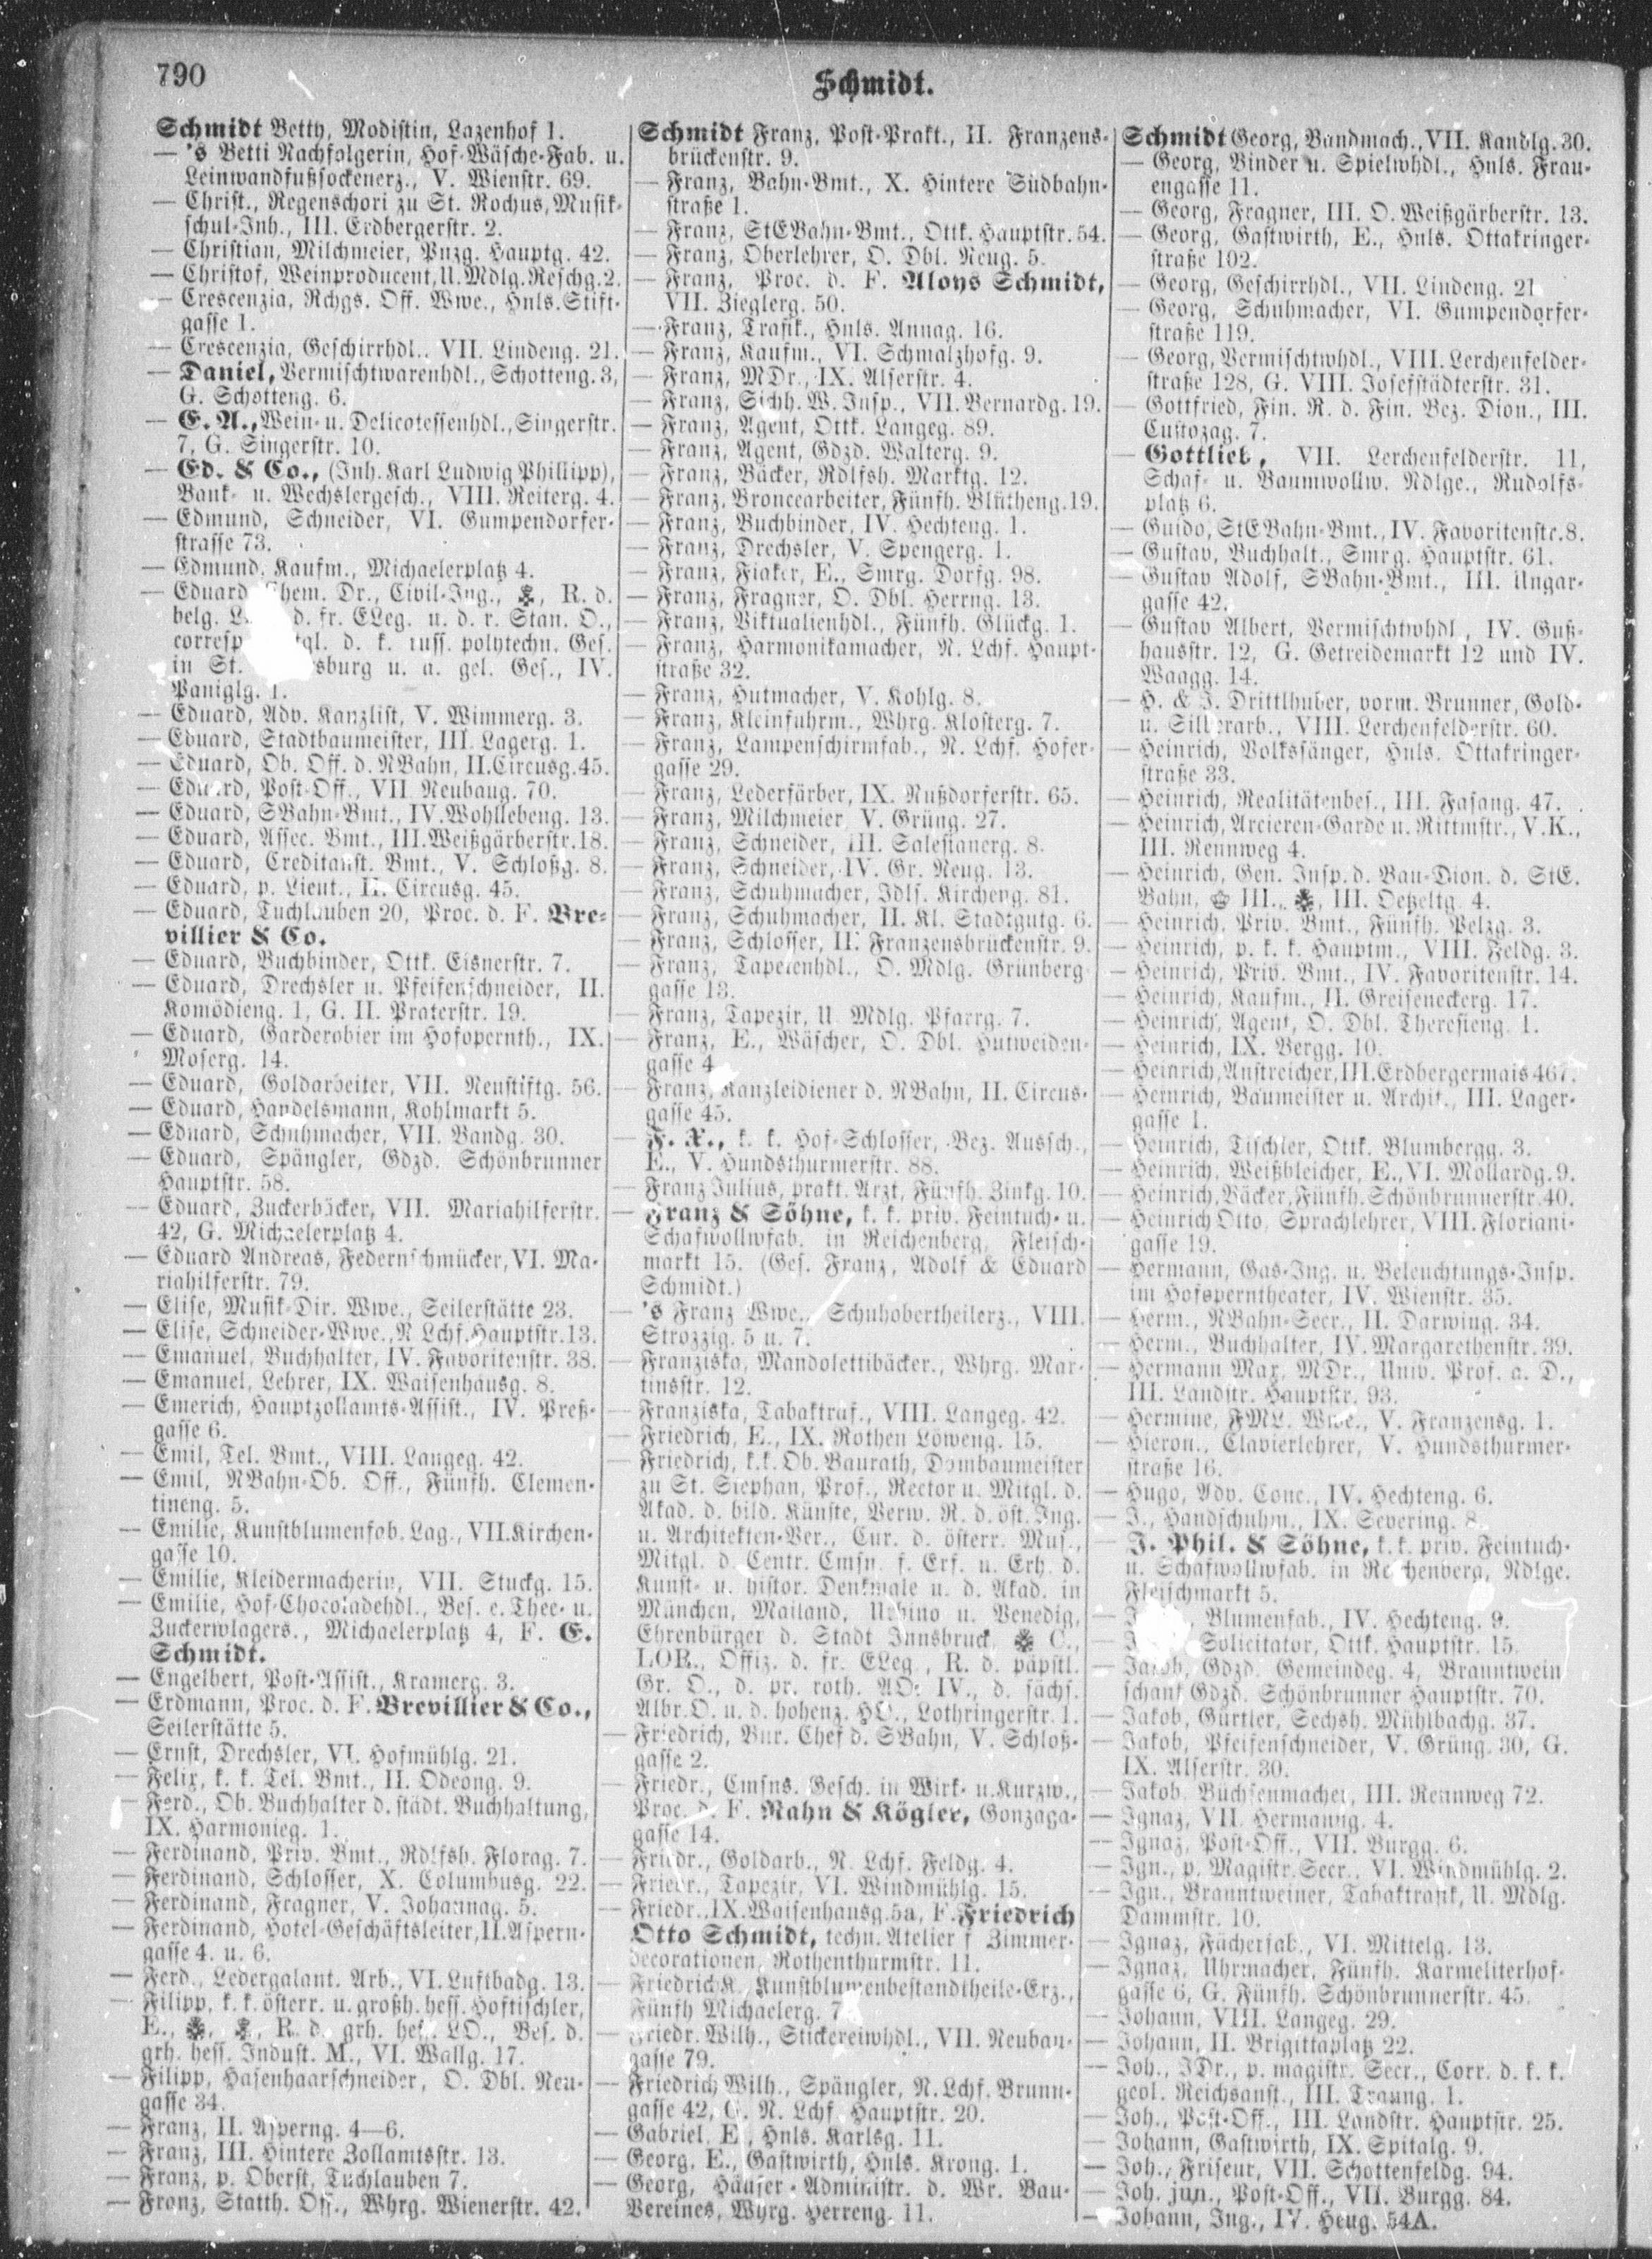 790
Schmidt.
Schmidt Betty, Modistin, Lazenhof 1.
— 's Betti Nachfolgerin, Hof-Wäsche-Fab. u.
Leinwandfußsockenerz., V. Wienstr. 69.
— Christ., Regenschori zu St. Rochus, Musik-
schul-Inh., III. Erdbergerstr. 2.
— Christian, Milchmeier, Pnzg. Hauptg. 42.
— Christof, Weinproducent, U. Mdlg. Reschg. 2.
— Crescenzia, Rchgs. Off. Wwe., Hnls. Stift-
gasse 1.
— Crescenzia, Geschirrhdl., VII. Lindeng. 21.
— Daniel, Vermischtwarenhdl., Schotteng. 3,
G. Schotteng. 6.
— E. A., Wein- u. Delicatessenhdl., Singerstr.
7, G. Singerstr. 10.
— Ed. & Co., (Inh. Karl Ludwig Phillipp),
Bank- u. Wechslergesch., VIII. Reiterg. 4.
— Edmund, Schneider, VI. Gumpendorfer-
strasse 73.
— Edmund, Kaufm., Michaelerplatz 4.
— Eduard Chem. Dr., Civil-Ing., R. d.
belg. d. fr. ELeg. u. d. r. Stan. O.,
corresp gl. d. k. russ. polytechn. Ges.
in St. sburg u. a. gel. Ges., IV.
Paniglg. 1.
— Eduard, Adv. Kanzlist, V. Wimmerg. 3.
— Eduard, Stadtbaumeister, III. Lagerg. 1.
— Eduard, Ob. Off. d. NBahn, II. Circusg. 45.
— Eduard, Post-Off., VII Neubaug. 70.
— Eduard, SBahn-Bmt., IV. Wohllebeng. 13.
— Eduard, Assec. Bmt., III. Weißgärberstr. 18.
— Eduard, Creditanst. Bmt., V. Schloßg. 8.
— Eduard, p. Lieut., II. Circusg. 45.
— Eduard, Tuchlauben 20, Proc. d. F. Bre-
villier & Co.
— Eduard, Buchbinder, Ottk. Eisnerstr. 7.
— Eduard, Drechsler u. Pfeifenschneider, II.
Komödieng. 1, G. II. Praterstr. 19.
— Eduard, Garderobier im Hofopernth., IX.
Moserg. 14.
— Eduard, Goldarbeiter, VII. Neustiftg. 56.
— Eduard, Handelsmann, Kohlmarkt 5.
— Eduard, Schuhmacher, VII. Bandg. 30.
— Eduard, Spängler, Gdzd. Schönbrunner
Hauptstr. 58.
— Eduard, Zuckerbäcker, VII. Mariahilferstr.
42, G. Michaelerplatz 4.
— Eduard Andreas, Federnschmücker, VI. Ma-
riahilferstr. 79.
— Elise, Musik-Dir. Wwe., Seilerstätte 23.
— Elise, Schneider-Wwe., N Lchf. Hauptstr. 13.
— Emanuel, Buchhalter, IV. Favoritenstr. 38.
— Emanuel, Lehrer, IX. Waisenhausg. 8.
— Emerich, Hauptzollamts-Assist., IV. Preß-
gasse 6.
— Emil, Tel. Bmt., VIII. Langeg. 42.
— Emil, NBahn-Ob. Off., Fünfh. Clemen-
tineng. 5.
— Emilie, Kunstblumenfab. Lag., VII. Kirchen-
gasse 10.
— Emilie, Kleidermacherin, VII. Stuckg. 15.
— Emilie, Hof-Chocoladehdl., Bes. e. Thee- u.
Zuckerwlagers., Michaelerplatz 4, F. E.
Schmidt.
— Engelbert, Post-Assist., Kramerg. 3.
— Erdmann, Proc. d. F. Brevillier & Co.,
Seilerstätte 5.
— Ernst, Drechsler, VI. Hofmühlg. 21.
— Felix, k. k. Tel. Bmt., II. Odeong. 9.
— Ferd., Ob. Buchhalter d. städt. Buchhaltung,
IX. Harmonieg. 1.
— Ferdinand, Priv. Bmt., Rdlfsh. Florag. 7.
— Ferdinand, Schlosser, X. Columbusg. 22.
— Ferdinand, Fragner, V. Johannag. 5.
— Ferdinand, Hotel-Geschäftsleiter, II. Aspern-
gasse 4. u. 6.
— Ferd., Ledergalant. Arb., VI. Luftbadg. 13.
— Filipp, k. k. österr. u. großh. hess. Hoftischler,
E., R. d. grh. hess. LO., Bes. d.
grh. hess. Indust. M., VI. Wallg. 17.
— Filipp, Hasenhaarschneider, O. Dbl. Neu-
gasse 34.
— Franz, II. Asperng. 4—6.
— Franz, III. Hintere Zollamtsstr. 13.
— Franz, p. Oberst, Tuchlauben 7.
— Franz, Statth. Off., Whrg. Wienerstr. 42.
Schmidt Franz, Post-Prakt., II. Franzens-
brückenstr. 9.
— Franz, Bahn-Bmt., X. Hintere Südbahn-
straße 1.
— Franz, StEBahn-Bmt., Ottk. Hauptstr. 54.
— Franz, Oberlehrer, O. Dbl. Neug. 5.
— Franz, Proc. d. F. Aloys Schmidt,
VII. Zieglerg. 50.
— Franz, Trafik., Hnls. Annag. 16.
— Franz, Kaufm., VI. Schmalzhofg. 9.
— Franz, MDr., IX. Alserstr. 4.
— Franz, Sichh. W. Insp., VII. Bernardg. 19.
— Franz, Agent, Ottk. Langeg. 89.
— Franz, Agent, Gdzd. Walterg. 9.
— Franz, Bäcker, Rdlfsh. Marktg. 12.
— Franz, Broncearbeiter, Fünfh. Blütheng. 19.
— Franz, Buchbinder, IV. Hechteng. 1.
— Franz, Drechsler, V. Spengerg. 1.
— Franz, Fiaker, E., Smrg. Dorfg. 98.
— Franz, Fragner, O. Dbl. Herrng. 13.
— Franz, Viktualienhdl., Fünfh. Glückg. 1.
— Franz, Harmonikamacher, N. Lchf. Haupt-
straße 32.
— Franz, Hutmacher, V. Kohlg. 8.
— Franz, Kleinfuhrm., Whrg. Klosterg. 7.
— Franz, Lampenschirmfab., N. Lchf. Hofer-
gasse 29.
— Franz, Lederfärber, IX. Nußdorferstr. 65.
— Franz, Milchmeier, V. Grüng. 27.
— Franz, Schneider, III. Salesianerg. 8.
— Franz, Schneider, IV. Gr. Neug. 13.
— Franz, Schuhmacher, Jdls. Kircheng. 81.
— Franz, Schuhmacher, II. Kl. Stadtgutg. 6.
— Franz, Schlosser, II. Franzensbrückenstr. 9.
— Franz, Tapetenhdl., O. Mdlg. Grünberg
gasse 13.
— Franz, Tapezir, U Mdlg. Pfarrg. 7.
— Franz, E., Wäscher, O. Dbl. Hutweiden-
gasse 4
— Franz, Kanzleidiener d. NBahn, II. Circus-
gasse 45.
— F. X., k. k. Hof-Schlosser, Bez. Aussch.,
E., V. Hundsthurmerstr. 88.
— Franz Julius, prakt. Arzt, Fünfh. Zinkg. 10.
— Franz & Söhne, k. k. priv. Feintuch- u.
Schafwollwfab. in Reichenberg, Fleisch-
markt 15. (Ges. Franz, Adolf & Eduard
Schmidt.)
— 's Franz Wwe., Schuhobertheilerz., VIII.
Strozzig. 5 u. 7.
— Franziska, Mandolettibäcker., Whrg. Mar-
tinsstr. 12.
— Franziska, Tabaktraf., VIII. Langeg. 42.
— Friedrich, E., IX. Rothen Löweng. 15.
— Friedrich, k. k. Ob. Baurath, Dombaumeister
zu St. Stephan, Prof., Rector u. Mitgl. d.
Akad. d. bild. Künste, Verw. R. d. öst. Ing.
u. Architekten-Ver., Cur. d. österr. Mus.,
Mitgl. d. Centr. Cmsn. f. Erf. u. Erh. d.
Kunst- u. histor. Denkmale u. d. Akad. in
München, Mailand, Urbino u. Venedig,
Ehrenbürger d. Stadt Innsbruck, C.,
LOR., Offiz. d. fr. ELeg., R. d. päpstl.
Gr. O., d. pr. roth. AO. IV., d. sächs.
Albr. O. u. d. hohenz. HO., Lothringerstr. 1.
— Friedrich, Bur. Chef d. SBahn, V. Schloß-
gasse 2.
— Friedr., Cmsns. Gesch. in Wirk- u. Kurzw.,
Proc. d. F. Rahn & Kögler, Gonzaga-
gasse 14.
— Friedr., Goldarb., N. Lchf. Feldg. 4.
— Friedr., Tapezir, VI. Windmühlg. 15.
— Friedr., IX. Waisenhausg. 5a, F. Friedrich
Otto Schmidt, techn. Atelier f Zimmer-
decorationen, Rothenthurmstr. 11.
— Friedrich K., Kunstblumenbestandtheile-Erz.,
Fünfh Michaelerg. 7
— Friedr. Wilh., Stickereiwhdl., VII. Neubau-
gasse 79.
— Friedrich Wilh., Spängler, N. Lchf. Brunn-
gasse 42, G. N. Lchf. Hauptstr. 20.
— Gabriel, E., Hnls. Karlsg. 11.
— Georg, E., Gastwirth, Hnls. Krong. 1.
— Georg, Häuser-Administr. d. Wr. Bau-
Vereines, Whrg. Herreng. 11.
Schmidt Georg, Bandmach., VII. Kandlg. 30.
— Georg, Binder u. Spielwhdl., Hnls. Frau-
engasse 11.
— Georg, Fragner, III. O. Weißgärberstr. 13.
— Georg, Gastwirth, E., Hnls. Ottakringer-
straße 102.
— Georg, Geschirrhdl., VII. Lindeng. 21
— Georg, Schuhmacher, VI. Gumpendorfer-
straße 119.
— Georg, Vermischtwhdl., VIII. Lerchenfelder-
straße 128, G. VIII. Josefstädterstr. 31.
— Gottfried, Fin. R. d. Fin. Bez. Dion., III.
Custozag. 7.
— Gottlieb, VII. Lerchenfelderstr. 11,
Schaf- u. Baumwollw. Ndlge., Rudolfs-
platz 6.
— Guido, StEBahn-Bmt., IV. Favoritenstr. 8.
— Gustav, Buchhalt., Smrg. Hauptstr. 61.
— Gustav Adolf, SBahn-Bmt., III. Ungar-
gasse 42.
— Gustav Albert, Vermischtwhdl., IV. Guß-
hausstr. 12, G. Getreidemarkt 12 und IV.
Waagg. 14.
— H. & J. Drittlhuber, vorm. Brunner, Gold-
u. Silberarb., VIII. Lerchenfelderstr. 60.
— Heinrich, Volkssänger, Hnls. Ottakringer-
straße 33.
— Heinrich, Realitätenbes., III. Fasang. 47.
— Heinrich, Arcieren-Garde u. Rittmstr., V. K.,
III. Rennweg 4.
— Heinrich, Gen. Insp. d. Bau-Dion. d. StE.
Bahn, III., III. Oetzeltg. 4.
— Heinrich, Priv. Bmt., Fünfh. Pelzg. 3.
— Heinrich, p. k. k. Hauptm., VIII. Feldg. 3.
— Heinrich, Priv. Bmt., IV. Favoritenstr. 14.
— Heinrich, Kaufm., II. Greiseneckerg. 17.
— Heinrich, Agent, O. Dbl. Theresieng. 1.
— Heinrich, IX. Bergg. 10.
— Heinrich, Anstreicher, III. Erdbergermais 467.
— Heinrich, Baumeister u. Archit., III. Lager-
gasse 1.
— Heinrich, Tischler, Ottk. Blumbergg. 3.
— Heinrich, Weißbleicher, E., VI. Mollardg. 9.
— Heinrich, Bäcker, Fünfh. Schönbrunnerstr. 40.
— Heinrich Otto, Sprachlehrer, VIII. Floriani-
gasse 19.
— Hermann, Gas-Ing. u. Beleuchtungs-Insp.
im Hofoperntheater, IV. Wienstr. 35.
— Herm., NBahn-Secr., II. Darwing. 34.
— Herm., Buchhalter, IV. Margarethenstr. 39.
— Hermann Max, MDr., Univ. Prof. a. D.,
III. Landstr. Hauptstr. 93.
— Hermine, FML. Wwe., V. Franzensg. 1.
— Hieron., Clavierlehrer, V. Hundsthurmer-
straße 16.
— Hugo, Adv. Conc., IV. Hechteng. 6.
— J., Handschuhm., IX. Severing. 8.
— J. Phil. & Söhne, k. k. priv. Feintuch-
u. Schafwollwfab. in Reichenberg, Ndlge.
Fleischmarkt 5.
— J , Blumenfab., IV. Hechteng. 9.
— J Solicitator, Ottk. Hauptstr. 15.
— Jakob, Gdzd. Gemeindeg. 4, Branntwein
schank Gdzd. Schönbrunner Hauptstr. 70.
— Jakob, Gürtler, Sechsh. Mühlbachg. 37.
— Jakob, Pfeifenschneider, V. Grüng. 30, G.
IX. Alserstr. 30.
— Jakob, Büchsenmacher, III. Rennweg 72.
— Ignaz, VII. Hermanng. 4.
— Ignaz, Post-Off., VII. Burgg. 6.
— Ign., p. Magistr. Secr., VI. Windmühlg. 2.
— Ign., Branntweiner, Tabaktrafik, U. Mdlg.
Dammstr. 10.
— Ignaz, Fächerfab., VI. Mittelg. 13.
— Ignaz, Uhrmacher, Fünfh. Karmeliterhof-
gasse 6, G. Fünfh. Schönbrunnerstr. 45.
— Johann, VIII. Langeg. 29.
— Johann, II. Brigittaplatz 22.
— Joh., JDr., p. magistr. Secr., Corr. d. k. k.
geol. Reichsanst., III. Traung. 1.
— Joh., Post-Off., III. Landstr. Hauptstr. 25.
— Johann, Gastwirth, IX. Spitalg. 9.
— Joh., Friseur, VII. Schottenfeldg. 94.
— Joh. jun., Post-Off., VII. Burgg. 84.
— Johann, Ing., IV. Heug. 54A.